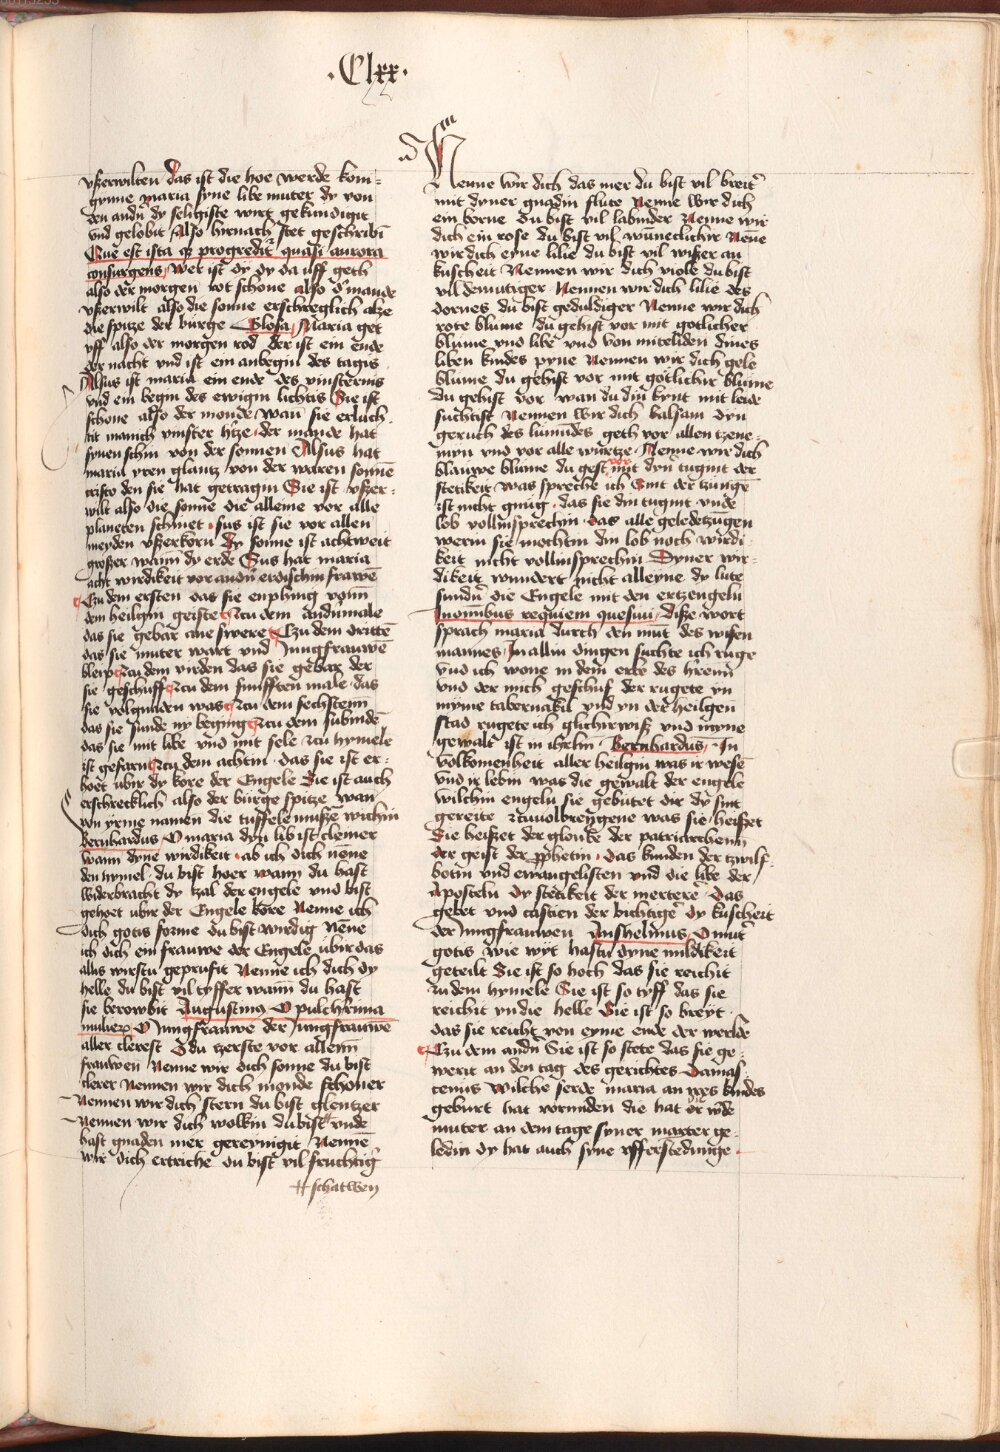 ·Clxx·
vßerwilten das ist die hoe werde kom-
gynne maria syne libe muter dy von
den andn̄ dy seligiste wirt gekundigit
vnd gelobit Also hirnach stet geschribn̄
Que est ista q̄ progredit̄ quasi aurora
consurgens, wer ist dy dy da uff geth
also der morgen rot schone also d' mande
vßerwilt also die sonne erschreglich alze
die spitze der burge Glosa, Maria get
vff also der morgen rod der ist ein ende
der nacht vnd ist ein anbegin des tagis
Alsus ist maria ein ende des vinsternis
vnd ein begin des ewigin lichtis Sie ist
schone also der monde wan sie erluch-
tit manich vinster h'tze der mande hat
synen schin von der sonnen Alsus hat
maria yren glantz von der waren sonne
cristo den sie hat getragin Sie ist vßer-
wilt also die sonne die alleine vor alle
planeten schinet · sus ist sie vor allen
meyden vßerkorn Dy sonne ist achtweit
großer wann dy erde Sus hat maria
acht wirdikeit vor andn̄ erdischin frawē
Czu dem ersten das sie enphing vonn
dem heilgin geiste Czu dem andn̄male
das sie gebar ane swere Czu dem drittē
das sie muter wart vnd Jungfrauwē
bleip Czu dem virden das sie gebar der
sie geschuff Czu dem funfften male das
sie volgnaden was Czu dem sechstenn
das sie sunde ny beging Czu dem subindē
das sie mit libe vnd mit sele zcu hymele
ist gefarn Czu dem achtin · das sie ist er-
hoet ubir dy kore der Engele Sie ist auch
erschrecklich also der burge spitze wan
von yrme namen die tuffele mußen wichin
Bernhardus, O maria dyn lib ist cleiner
wann dyne wirdikeit · ab ich dich nēne
den hymel · du bist hoer wann du hast
widerbracht dy tzal der engele vnd bist
gehoet ubir der Engele kore Nenne ich
dich gotis forme du bist wirdig Nēne
ich dich ein frauwe der Engele ubir das
allis wirstu geprufit Nenne ich dich dy
helle du bist vil tyffer wann du hast
sie berowbit Augustinus O pulch'rima
mulierꝝ O Jungfrauwe der Jungfrauwē
aller clerest O du tzerste vor allenn
frauwen Nenne wir dich sonne du bist
clerer Nennen wir dich monde schoner
Nennen wir dich stern du bist glentzer
Nennen wir dich wolkin du bist vnde
hast gnaden mer gereynigit Nennē
wir dich ertriche du bist vil fruchtig'
# schatwen
Nenne wir dich das mer du bist vil breit'
mit dyner gnadin flute Nenne wir dich
ein borne du bist vil labinder Nenne wir
dich ein rose du bist vil wūneclichir Nēne
wir dich eyne lilie du bist vil wißer an
kuscheit Nennen wir dich viole du bist
vil demutiger Nennen wir dich lilie des
dornes du bist geduldiger Nenne wir dich
rote blume du gehist vor mit gotlicher
blume vnd libe vnd von miteliden dines
liben kindes pyne Nennen wir dich gele
blume du gehist vor mit gotlichir blume
du gehist vor wan du din kynt mit leide
suchtist Nennen wir dich balsam dyn
geruch des lumūdes geth vor allen tzene-
myn vnd vor alle wurtze · Nenne wir dich
blauwe blume du gest vor mit dyn tugint der
stetikeit was spreche ich Smt der zungē
ist nicht gnug · das sie din tugint vnde
lob vollinsprechin · das alle geledetzungen
werin sie mochtin din lob noch wirdi-
keit nicht vollinsprechin Dyner wir-
dikeit wundert nicht alleyne dy lute
sundn̄ die Engele mit den ertzengeln
Inomībus requiem quesiui, diße wort
sprach maria durch den mut des wisen
mannes, In allin dingen suchte ich ruge
vnd ich wone in dem erbe des h'ren
vnd der mich geschuf der rugete yn
myme tabernakil vnd yn der heilgen
stad rugete ich glichirwiß vnd myne
gewalt ist in ih'rlm Bernhardus, In
volkomenheit aller heilgin was ir wesē
vnd ir lebin was die gewalt der engele
wilchin engeln sie gebutet dir dy sint
gereite zcuuolbreyngene was sie heißet
Sie heißet der gloube der patriarchenn
der geist der ꝓphetin · Das kunden der tzwilf-
botin vnd ewangelisten vnd die libe der
Aposteln Dy stetikeit der mertere Das
gebet vnd castien der bichtigē Dy kuscheit
der Jungfrauwen Anshelmus, O mut'
gotis wie wyt hastu dyne mildikeit
geteilt Sie ist so hoch das sie reichit
zu dem hymele Sie ist so tyff das sie
reichit yn die helle Sie ist so breyt
das sie reicht von eyme ende der werlde
Czu dem andn̄ Sie ist so stete das sie ge-
werit an den tag des gerichtes Damas-
cenus Wilche serde maria an yres kindes
geburt hat vormiden die hat er irde
muter an dem tage syner marter ge-
ledin dy hat auch syne vfferstedunge ·